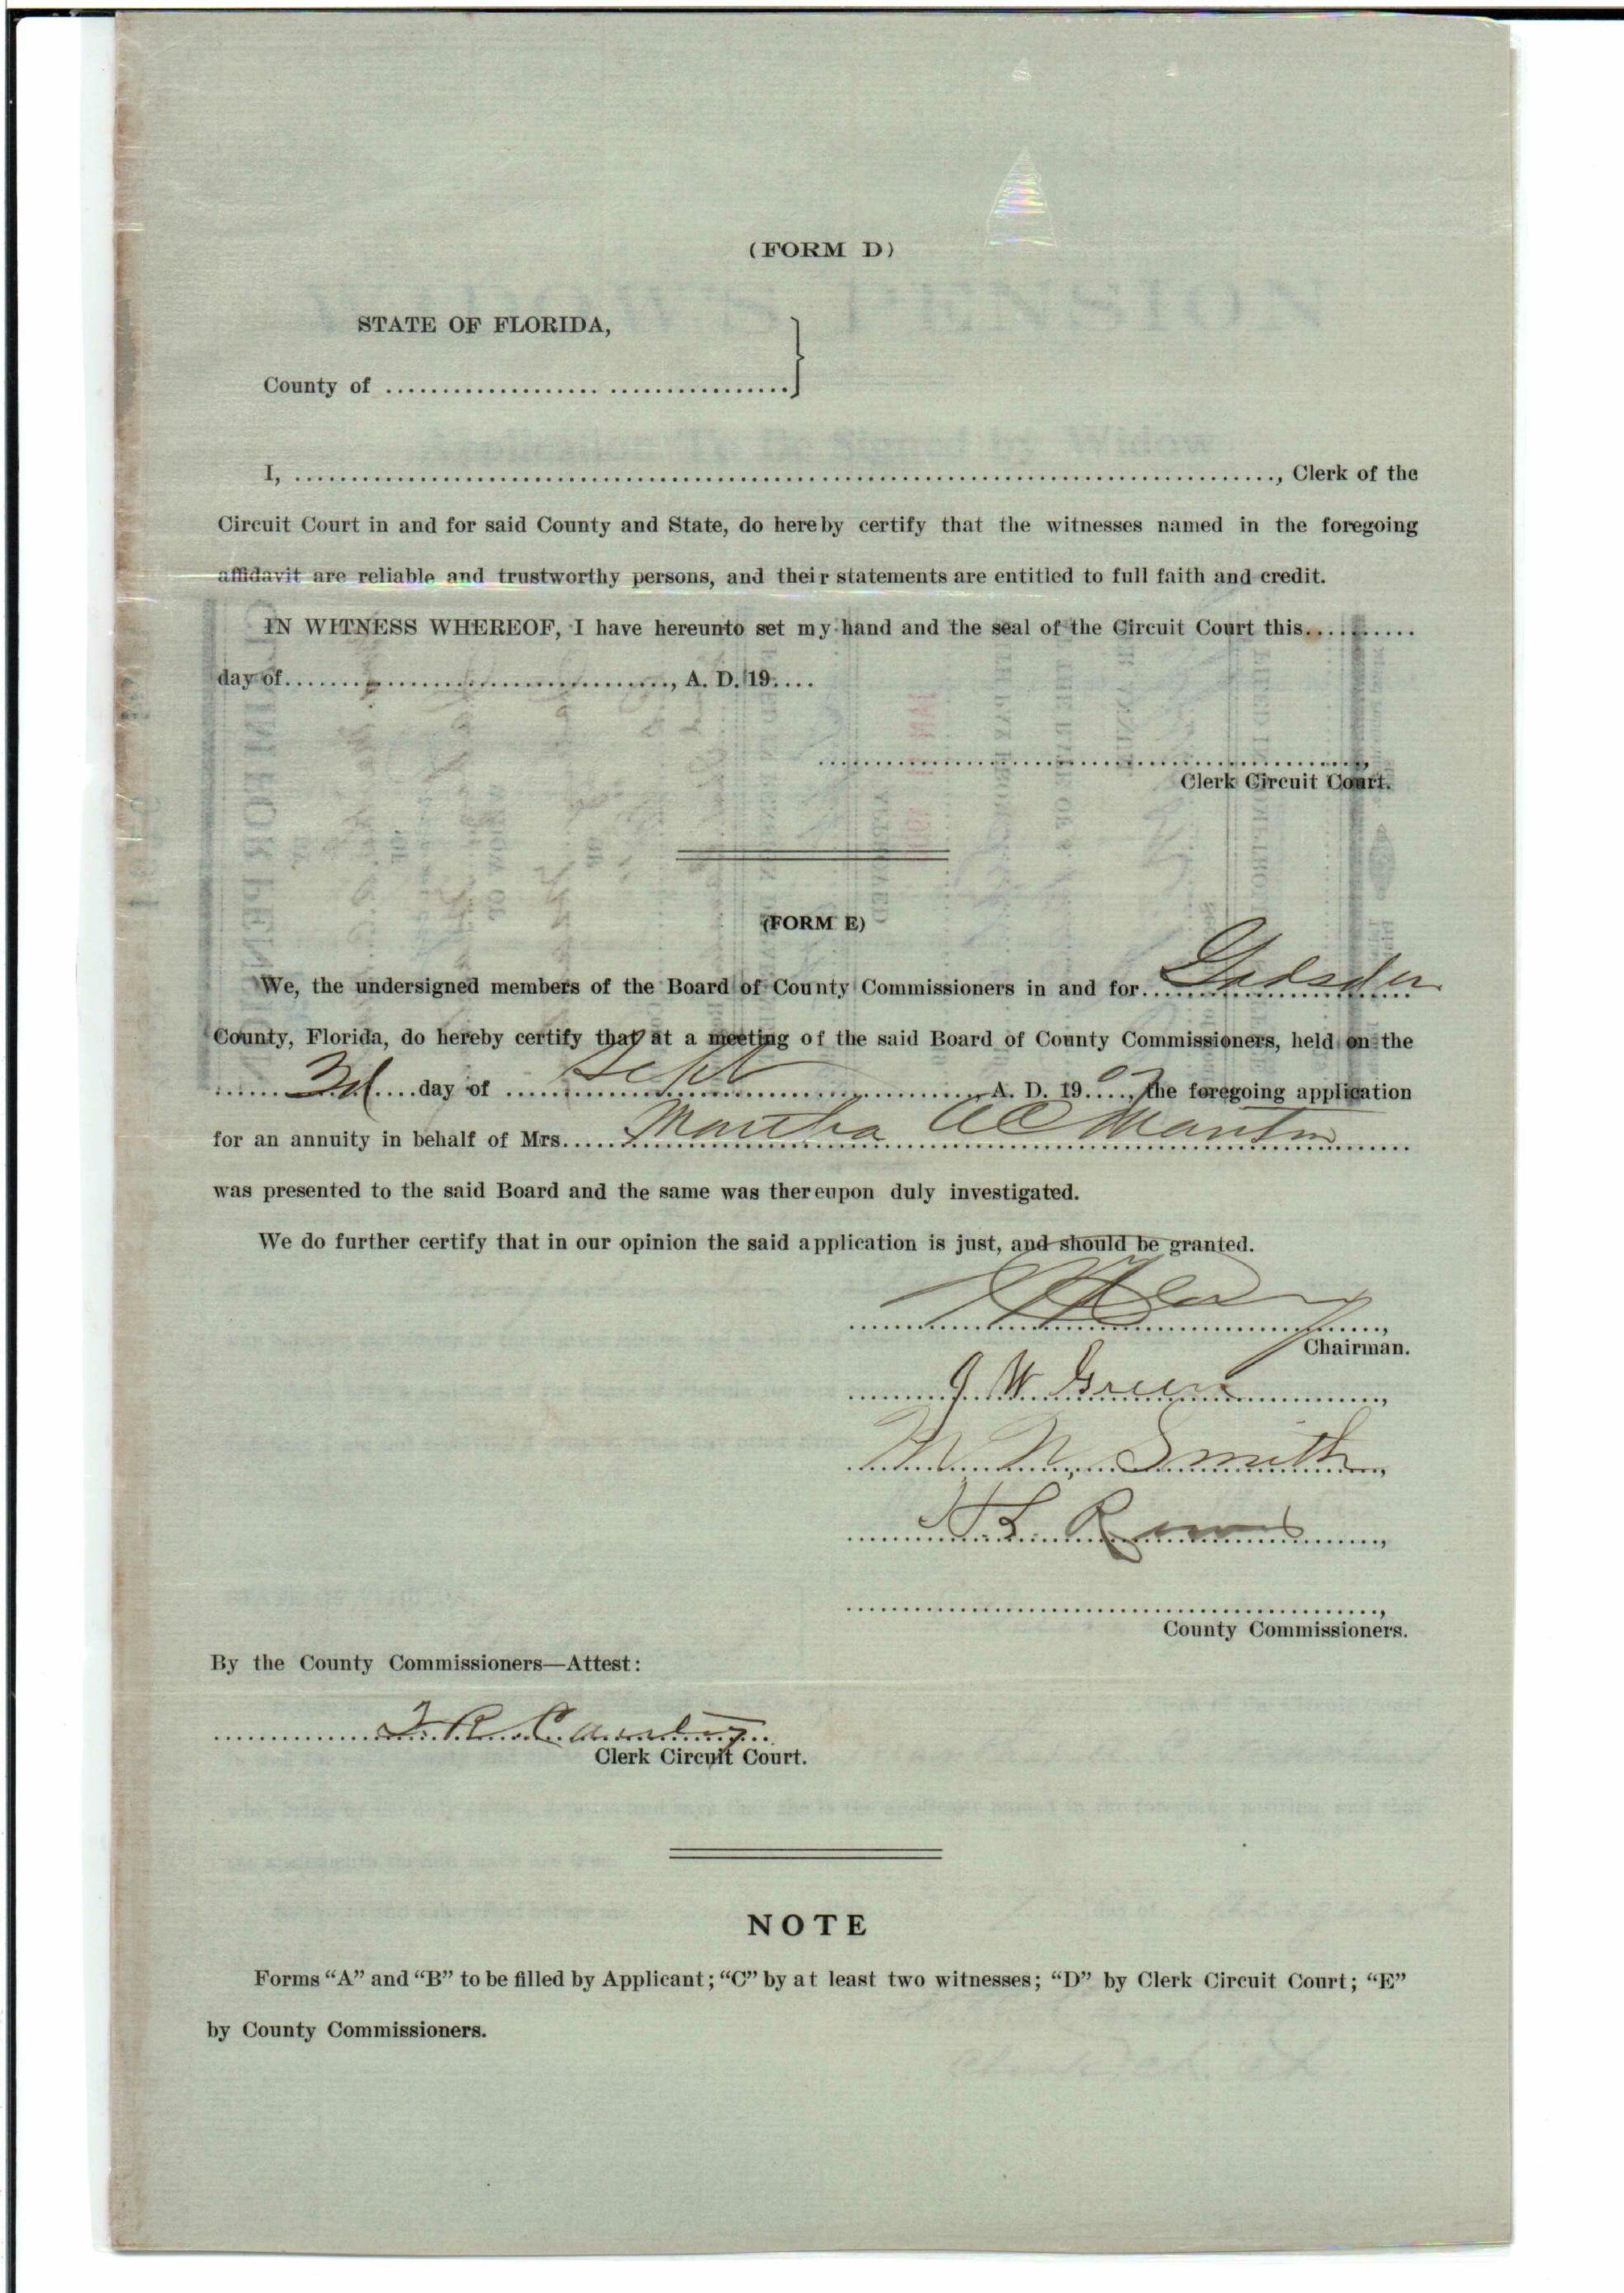 (FORM D)
STATE OF FLORIDA,
County of
I, , Clerk of the
Circuit Court in and for said County and State, do hereby certify that the witnesses named in the foregoing
affidavit are reliable and trustworthy persons, and their statements are entitled to full faith and credit.
IN WITNESS WHEREOF, I have hereunto set my hand and the seal of the Circuit Court this
day of , A. D. 19
Clerk Circuit Court.
(FORM E)
We, the undersigned members of the Board of County Commissioners in and for Gadsden
County, Florida, do hereby certify that at a meeting of the said Board of County Commissioners, held on the
3d day of Sept A. D. 1907, the foregoing application
for an annuity in behalf of Mrs. Martha Martin
was presented to the said Board and the same was thereupon duly investigated.
We do further certify that in our opinion the said application is just, and should be granted.
Chairman.
J. W. Green
Smith
County Commissioners.
By the County Commissioners—Attest:
Clerk Circuit Court.
NOTE
Forms “A” and “B” to be filled by Applicant; “C” by at least two witnesses; “D” by Clerk Circuit Court; “E”
by County Commissioners.